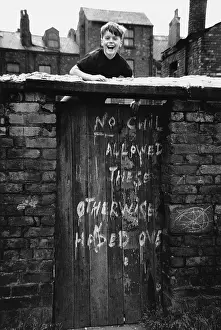 NO CHIL
ALLOWED
THESE
OTHERWISE
HANDED OVE